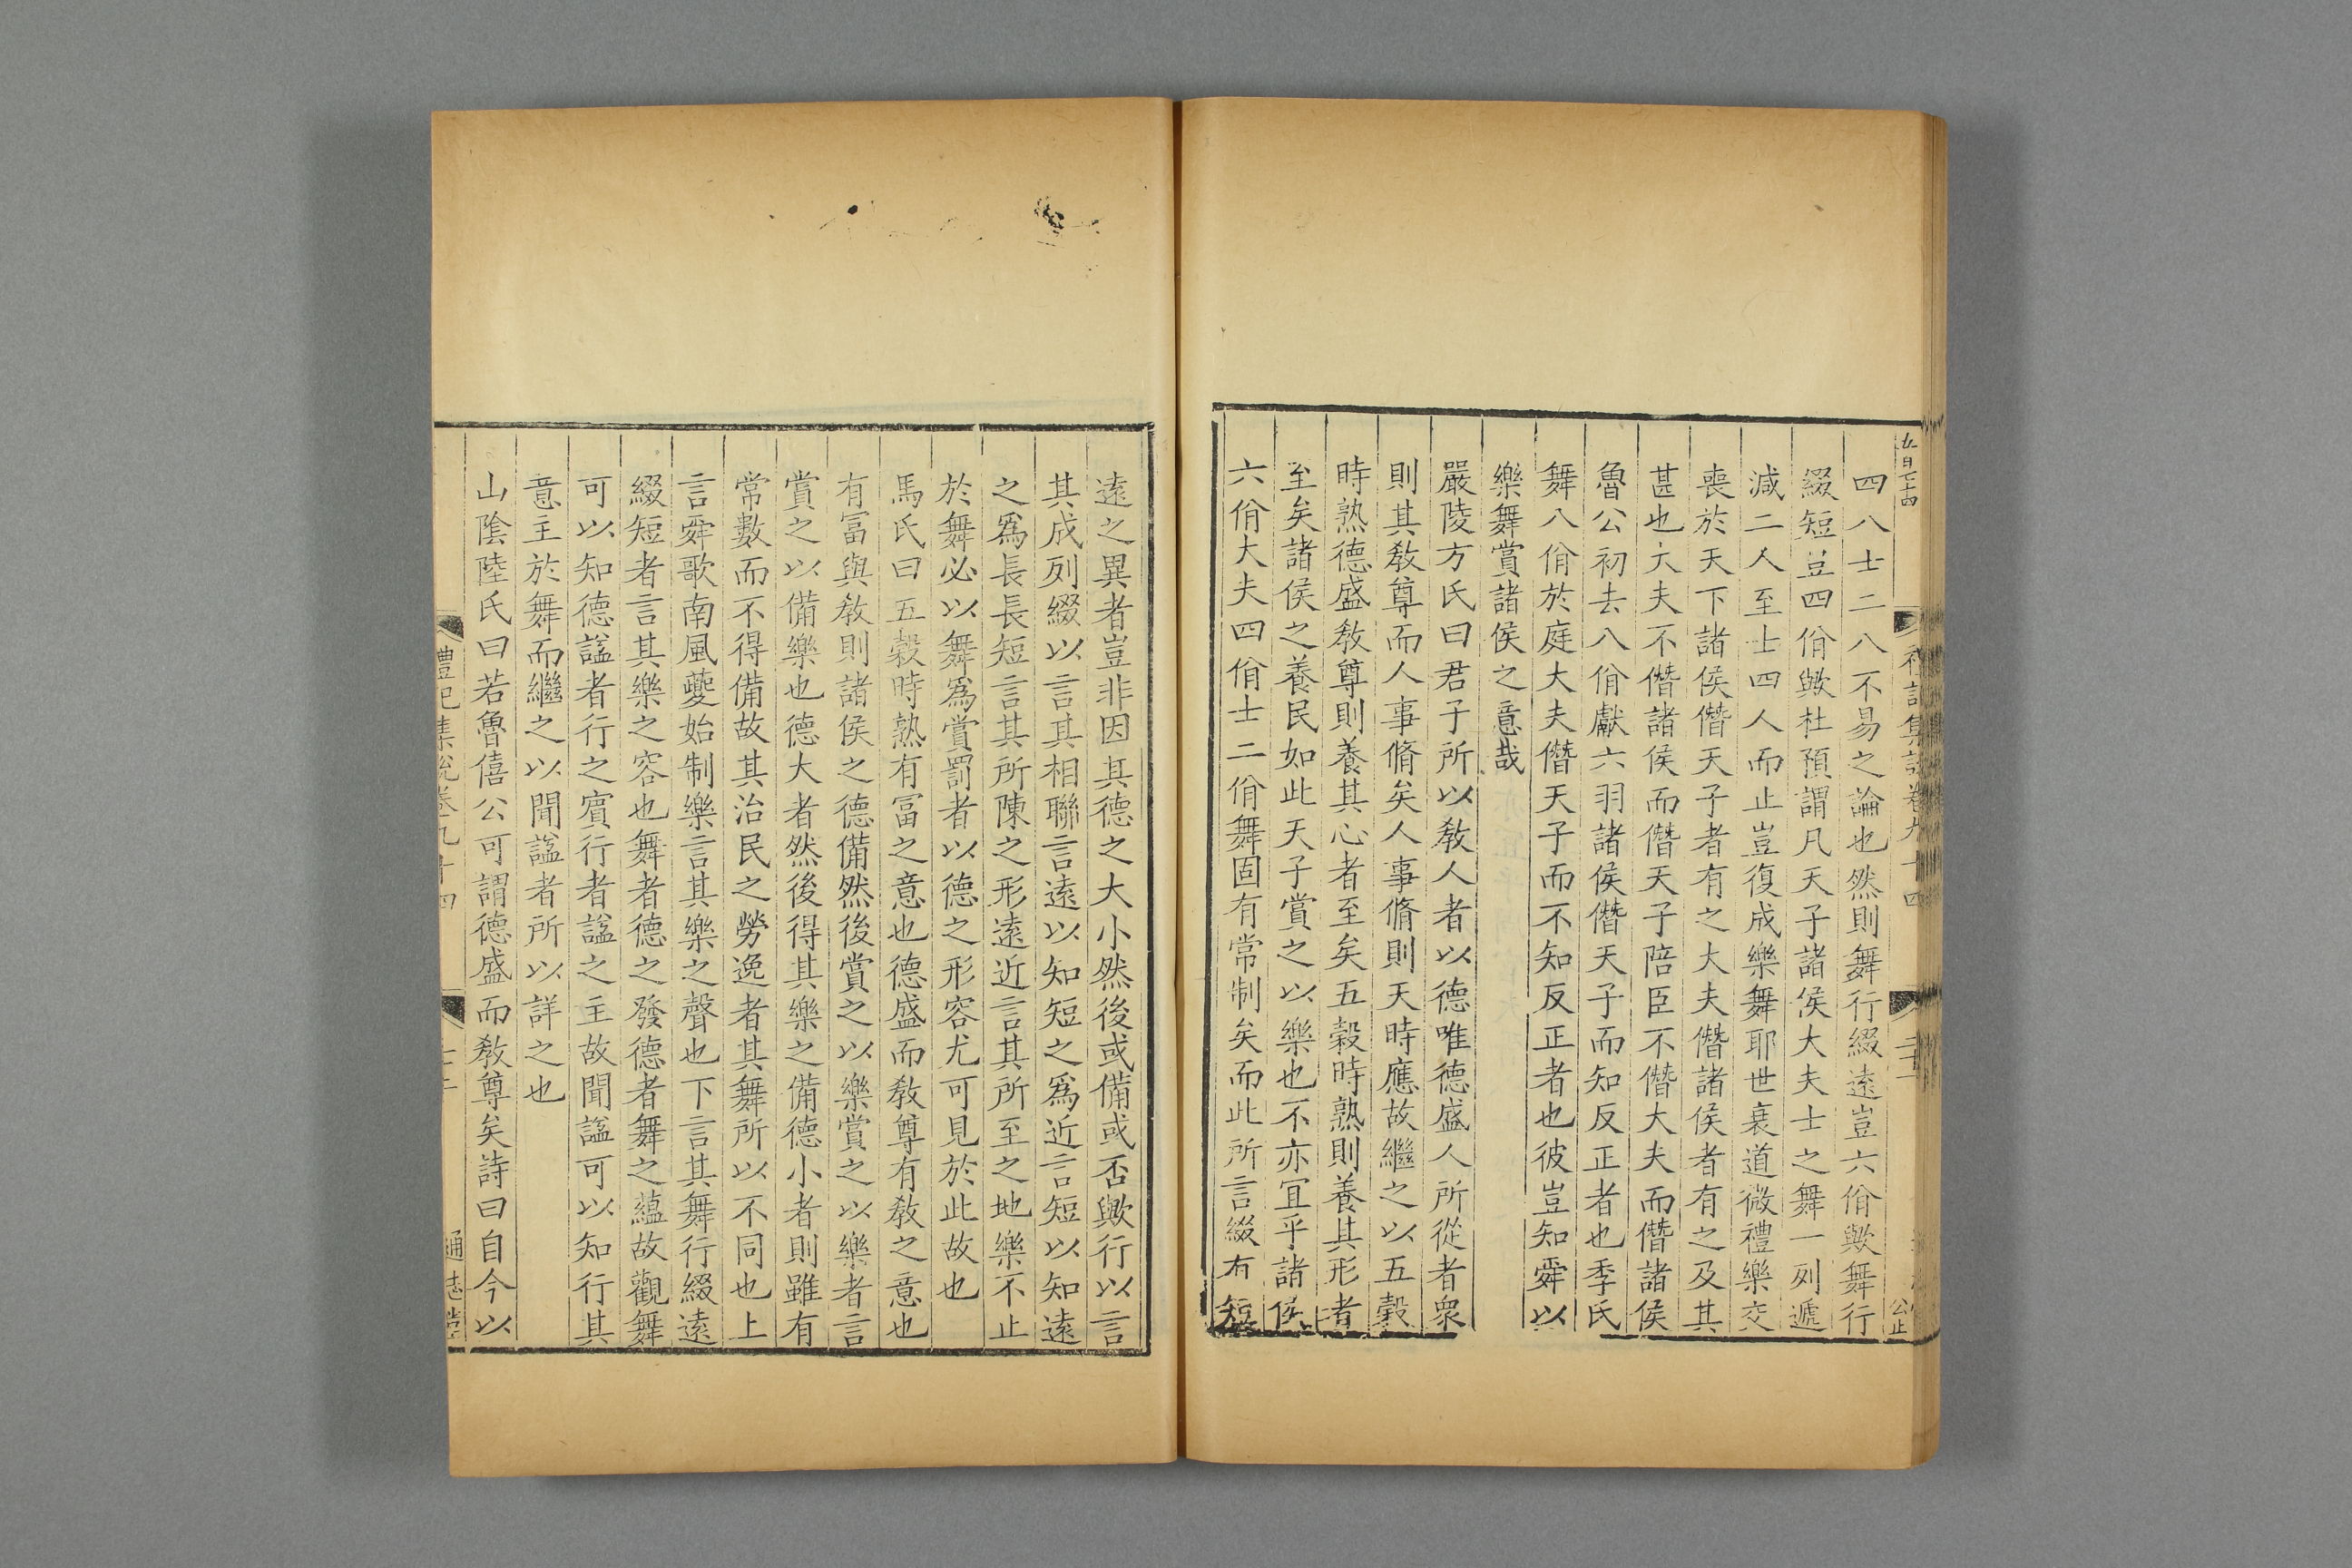 四八士二八不易之論也然則舞行綴遠豈六佾歟舞行
綴短豈四佾歟杜預謂凡天子諸侯大夫士之舞一列遞
減二人至士四人而止豈復成樂舞耶世衰道微禮樂交
喪於天下諸侯僭天子者有之大夫僭諸侯者有之及其
甚也大夫不僭諸侯而僭天子陪臣不僭大夫而僭諸侯
魯公初去八佾獻六羽諸侯僭天子而知反正者也季氏
舞八佾於庭大夫僭天子而不知反正者也彼豈知舜以
樂舞賞諸侯之意哉
嚴陵方氏曰君子所以敎人者以德唯德盛人所從者衆
則其敎尊而人事脩矣人事脩則天時應故繼之以五穀
時熟德盛敎尊則養其心者至矣五穀時熟則養其形者
至矣諸侯之養民如此天子賞之以樂也不亦冝乎諸侯
六佾大夫四佾士二佾舞固有常制矣而此所言綴有短
遠之異者豈非因其德之大小然後或備或否歟行以言
其成列綴以言其相聯言遠以知短之爲近言短以知遠
之爲長長短言其所陳之形遠近言其所至之地樂不止
於舞必以舞爲賞罰者以德之形容尤可見於此故也
馬氏曰五穀時熟有冨之意也德盛而敎尊有敎之意也
有冨與敎則諸侯之德備然後賞之以樂賞之以樂者言
賞之以備樂也德大者然後得其樂之備德小者則雖有
常數而不得備故其治民之勞逸者其舞所以不同也上
言舜歌南風夔始制樂言其樂之聲也下言其舞行綴遠
綴短者言其樂之容也舞者德之發德者舞之蘊故觀舞
可以知德諡者行之賓行者諡之主故聞諡可以知行其
意主於舞而繼之以聞諡者所以詳之也
山陰陸氏曰若魯僖公可謂德盛而敎尊矣詩曰自今以
禮記集說卷九十四
通志堂